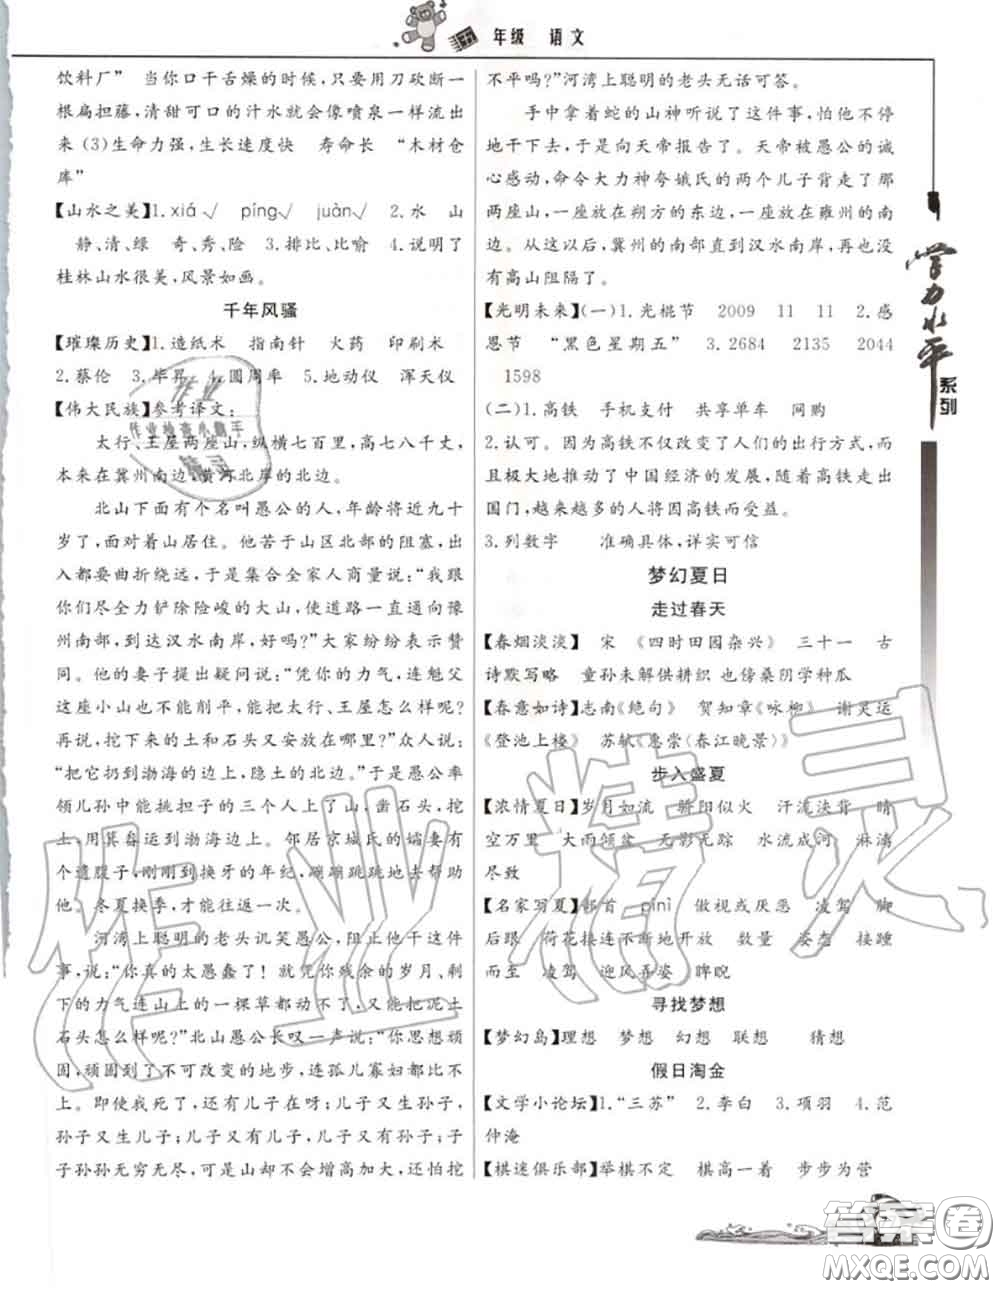 年级 语文
饮料厂” 当你口干舌燥的时候,只要用刀砍断一
根扁担藤,清甜可口的汁水就会像喷泉一样流出
来 (3)生命力强,生长速度快 寿命长 “木材仓
库”
【山水之美】1. xiá√ píng√ juàn√ 2. 水 山
静、清、绿 奇、秀、险 3. 排比、比喻 4. 说明了
桂林山水很美,风景如画。
千年风骚
【璀璨历史】1. 造纸术 指南针 火药 印刷术
2. 蔡伦 3. 毕昇 4. 圆周率 5. 地动仪 浑天仪
【伟大民族】参考译文:
太行、王屋两座山,纵横七百里,高七八千丈,
本来在冀州南边,黄河北岸的北边。
北山下面有个名叫愚公的人,年龄将近九十
岁了,面对着山居住。他苦于山区北部的阻塞,出
入都要曲折绕远,于是集合全家人商量说:“我跟
你们尽全力铲除险峻的大山,使道路一直通向豫
州南部,到达汉水南岸,好吗?”大家纷纷表示赞
同。他的妻子提出疑问说:“凭你的力气,连魁父
这座小山也不能削平,能把太行、王屋怎么样呢?
再说,挖下来的土和石头又安放在哪里?”众人说:
“把它扔到渤海的边上,隐土的北边。”于是愚公率
领儿孙中能挑担子的三个人上了山,凿石头,挖
土,用箕畚运到渤海边上。邻居京城氏的孀妻有
个遗腹子,刚刚到换牙的年纪,蹦蹦跳跳地去帮助
他。冬夏换季,才能往返一次。
河湾上聪明的老头讥笑愚公,阻止他干这件
事,说:“你真的太愚蠢了!就凭你残余的岁月、剩
下的力气连山上的一棵草都动不了,又能把泥土
石头怎么样呢?”北山愚公长叹一声说:“你思想顽
固,顽固到了不可改变的地步,连孤儿寡妇都比不
上。即使我死了,还有儿子在呀;儿子又生孙子,
孙子又生儿子;儿子又有儿子,儿子又有孙子;子
子孙孙无穷无尽,可是山却不会增高加大,还怕挖
不平吗?”河湾上聪明的老头无话可答。
手中拿着蛇的山神听说了这件事,怕他不停
地干下去,于是向天帝报告了。天帝被愚公的诚
心感动,命令大力神夸娥氏的两个儿子背走了那
两座山,一座放在朔方的东边,一座放在雍州的南
边。从这以后,冀州的南部直到汉水南岸,再也没
有高山阻隔了。
【光明未来】(一)1. 光棍节 2009 11 11 2. 感
恩节 “黑色星期五” 3. 2684 2135 2044
1598
(二)1. 高铁 手机支付 共享单车 网购
2. 认可。因为高铁不仅改变了人们的出行方式,而
且极大地推动了中国经济的发展,随着高铁走出
国门,越来越多的人将因高铁而受益。
3. 列数字 准确具体,详实可信
梦幻夏日
走过春天
【春烟淡淡】 宋 《四时田园杂兴》 三十一 古
诗默写略 童孙未解供耕织 也傍桑阴学种瓜
【春意如诗】志南《绝句》 贺知章《咏柳》 谢灵运
《登池上楼》 苏轼《惠崇〈春江晚景〉》
步入盛夏
【浓情夏日】岁月如流 骄阳似火 汗流浃背 晴
空万里 大雨倾盆 无影无踪 水流成河 淋漓
尽致
【名家写夏】部首 pínì 傲视或厌恶 凌驾 脚
后跟 荷花接连不断地开放 数量 姿态 接踵
而至 凌驾 迎风弄姿 睥睨
寻找梦想
【梦幻岛】理想 梦想 幻想 联想 猜想
假日淘金
【文学小论坛】1. “三苏” 2. 李白 3. 项羽 4. 范
仲淹
【棋迷俱乐部】举棋不定 棋高一着 步步为营
学力水平
系列
作业精灵
答案圈
MXQE.COM